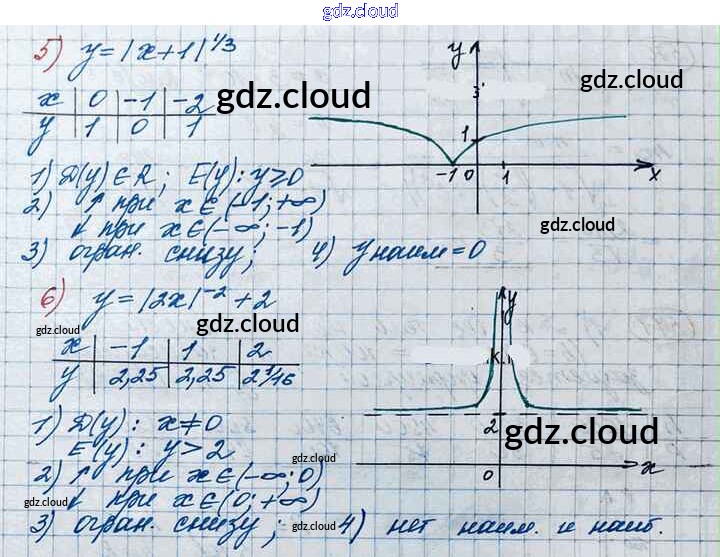 gdz.cloud
5) y = |x+1|^1/3
x | 0 | -1 | -2
y | 1 | 0 | 1
gdz.cloud
gdz.cloud
y
1
-1 0 1 x
1) D(y) ∈ R; E(y): y ⩾ 0
2) ↑ при x ∈ (-1; +∞)
↓ при x ∈ (-∞; -1)
3) огран. снизу; 4) y наим = 0
gdz.cloud
6) y = |2x|^-2 + 2
gdz.cloud
gdz.cloud
x | -1 | 1 | 2
y | 2,25 | 2,25 | 2 1/16
y
2
0 x
gdz.cloud
1) D(y): x ≠ 0
E(y): y > 2
2) ↑ при x ∈ (-∞; 0)
↓ при x ∈ (0; +∞)
gdz.cloud
gdz.cloud
3) огран. снизу; gdz.cloud 4) нет наим. и наиб.